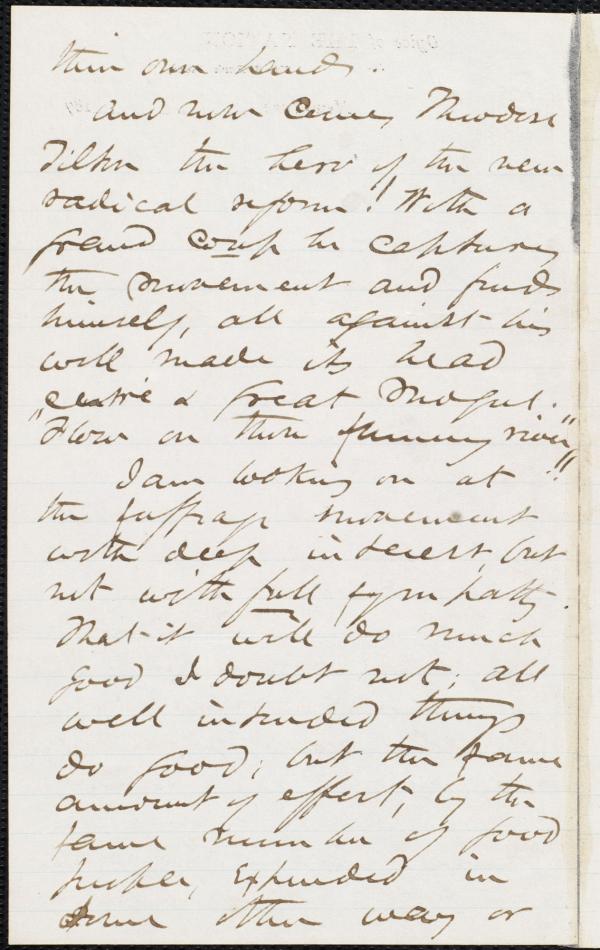 their own hands.
And now comes Theodore
Tilton the hero of the new
radical reform! With a
grand coup he captures
the movement and finds
himself, all against his
will made its head
centre & great Mogul.
"Flow on thou shining river"!!
I am looking on at
the suffrage movement
with deep interest, but
not with full sympathy.
That it will do much
good I doubt not; all
well intended things
do good; but the same
amount of effort, by the
same number of good
people, expended in
some other way or